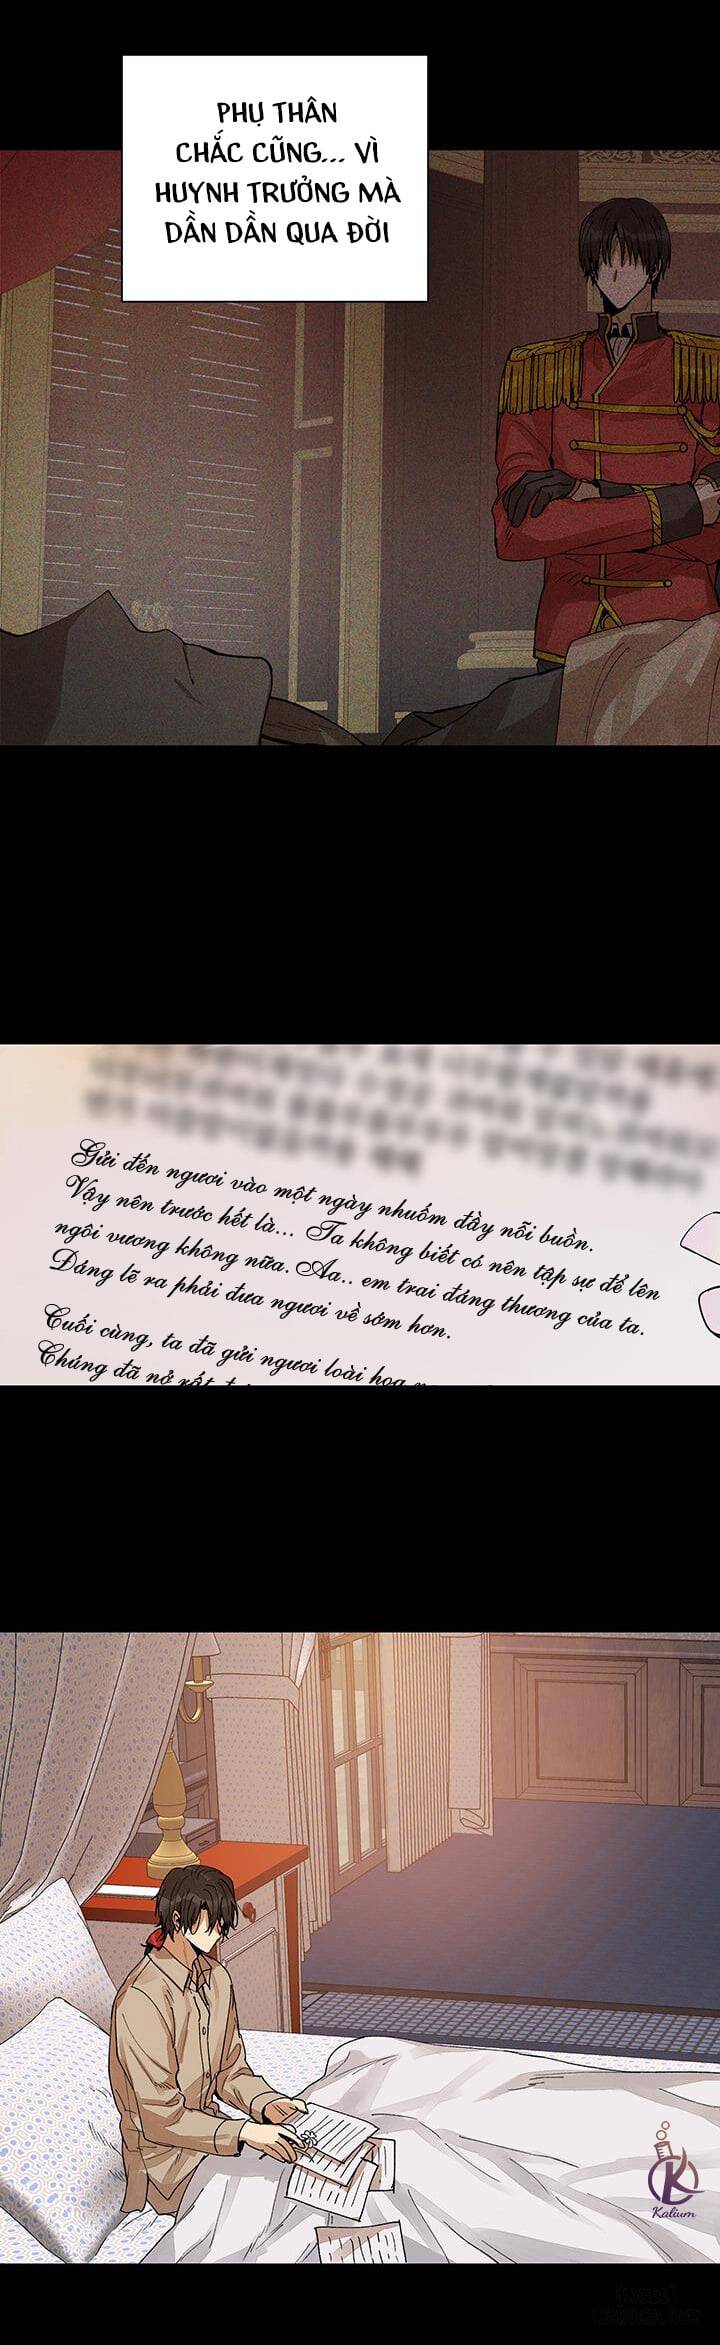 PHỤ THÂN
CHẮC CŨNG... VÌ
HUYNH TRƯỞNG MÀ
DẦN DẦN QUA ĐỜI
Gửi đến ngươi vào một ngày nhuốm đầy nỗi buồn.
Vậy nên trước hết là... Ta không biết có nên tập sự để lên
ngôi vương không nữa. Aa.. em trai đáng thương của ta.
Đáng lẽ ra phải đưa ngươi về sớm hơn.
Cuối cùng, ta đã gửi ngươi loài hoa
Chúng đã nở rất
K
Kalium